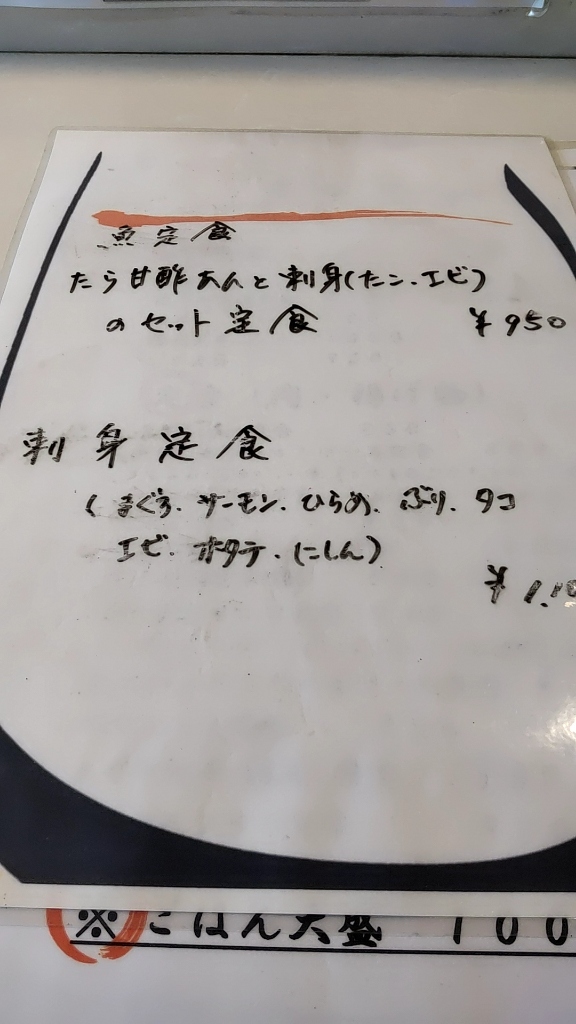 魚定食
たら甘酢あんと刺身(たこ、エビ)
のセット定食 ¥950
刺身定食
(まぐろ、サーモン、ひらめ、ぶり、タコ
エビ、ホタテ、にしん)
¥1.10
※ごはん大盛 100